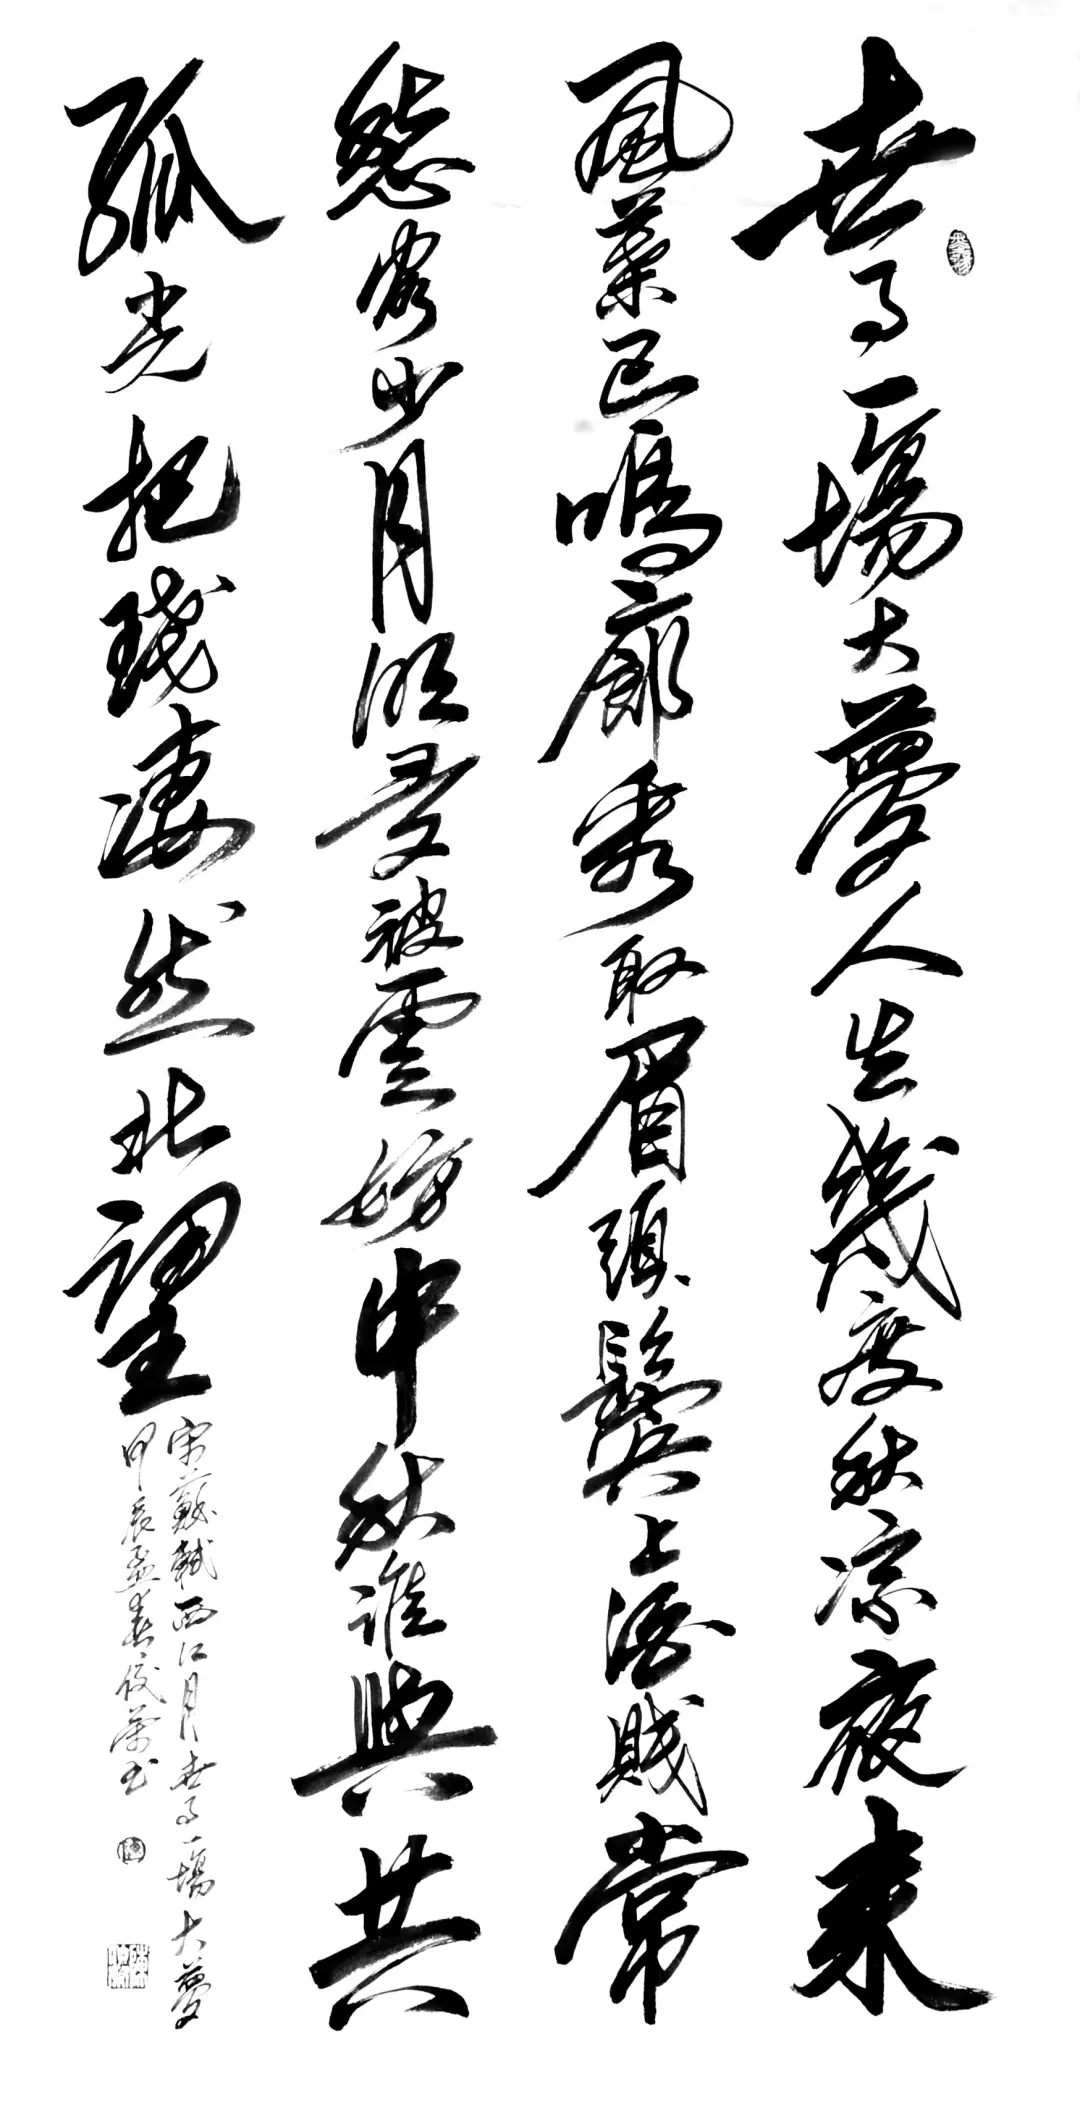 世事一場大夢人生幾度秋凉夜來
風葉已鳴廊看取眉頭鬢上酒賤常
愁客少月明多被雲妨中秋誰與共
孤光把琖凄然北望
宋蘇軾西江月世事一場大夢
甲辰孟春俊榮書